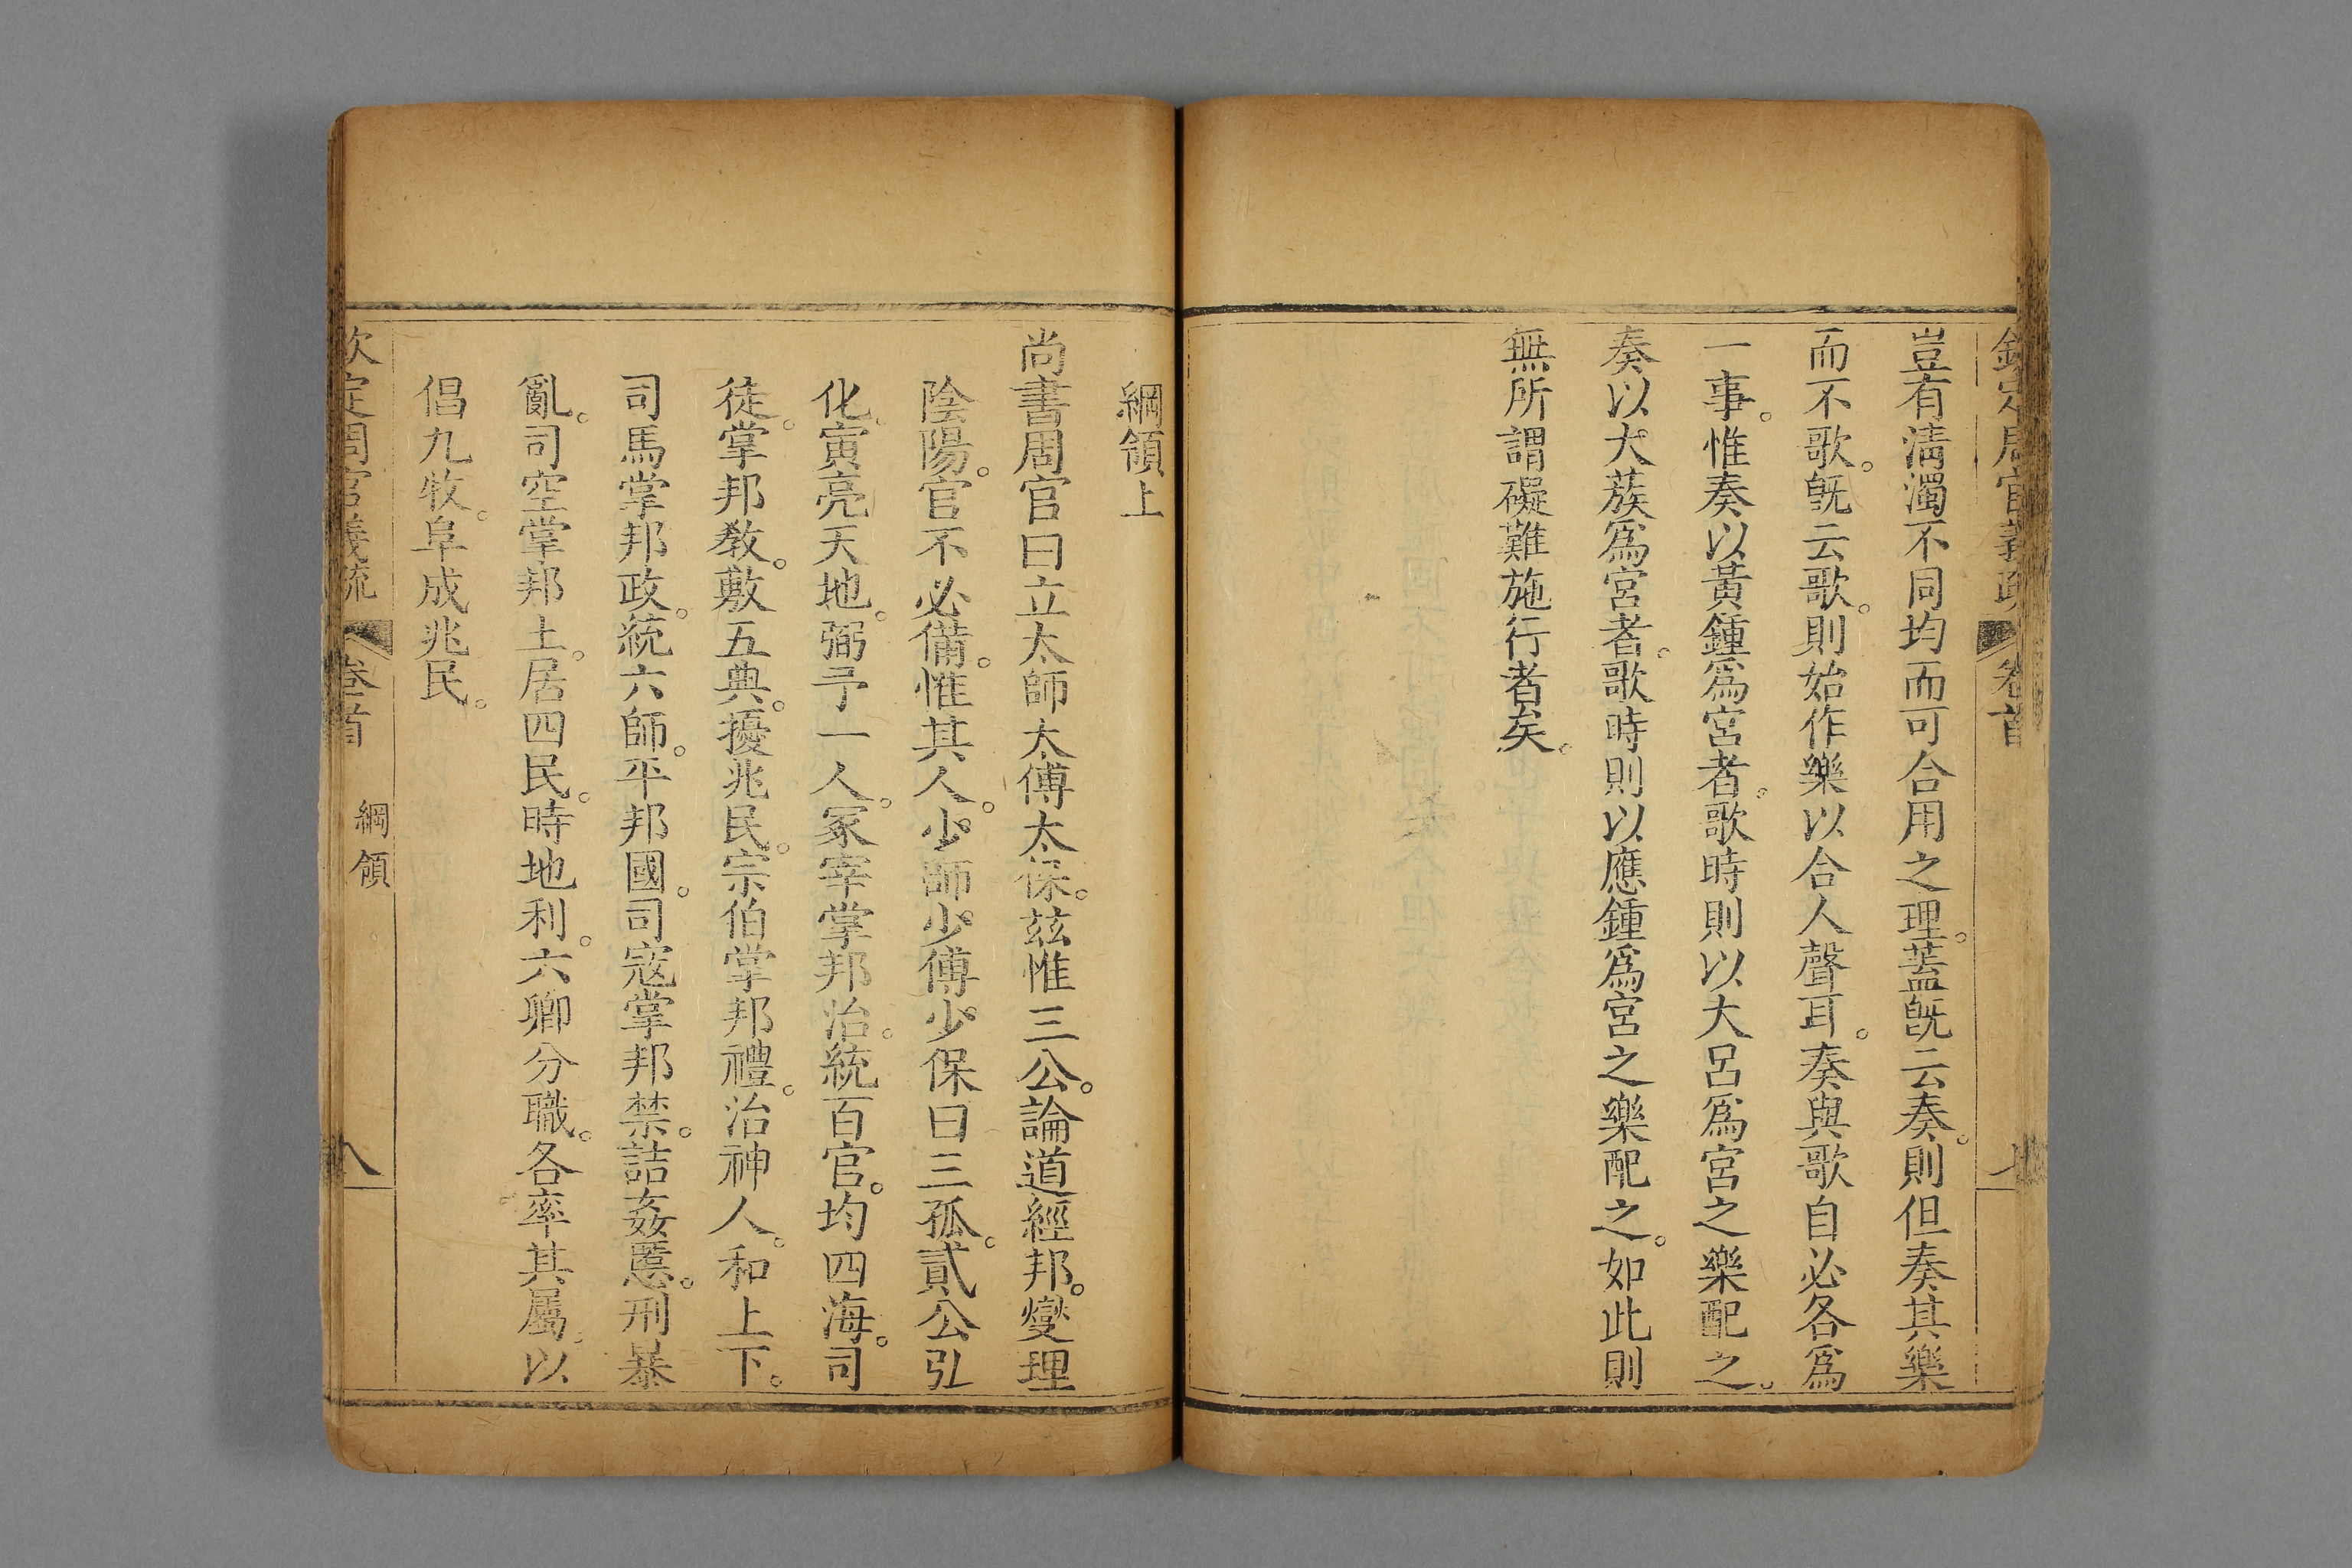 欽定周官義疏 卷首 七
豈有清濁不同均而可合用之理。蓋旣云奏。則但奏其樂
而不歌。旣云歌。則始作樂以合人聲耳。奏與歌自必各爲
一事。惟奏以黃鍾爲宮者。歌時則以大呂爲宮之樂配之。
奏以大蔟爲宮者。歌時則以應鍾爲宮之樂配之。如此則
無所謂礙難施行者矣。
綱領上
尚書周官曰立太師太傅太保。茲惟三公。論道經邦。燮理
陰陽。官不必備。惟其人。少師少傅少保曰三孤。貳公弘
化。寅亮天地。弼予一人。冢宰掌邦治。統百官。均四海。司
徒。掌邦敎。敷五典。擾兆民。宗伯掌邦禮。治神人。和上下。
司馬掌邦政。統六師。平邦國。司寇掌邦禁。詰姦慝。刑暴
亂。司空掌邦土。居四民。時地利。六卿分職。各率其屬。以
倡九牧。阜成兆民。
欽定周官義疏 卷首 綱領 八